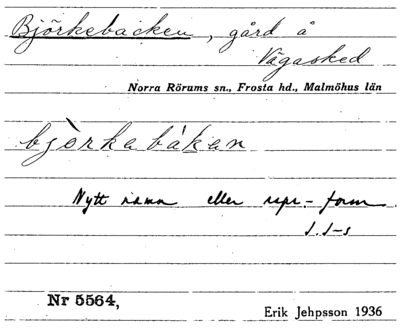 Björkebacken, gård å
Vägasked
Norra Rörums sn., Frosta hd., Malmöhus län
bjòrkabákan
Nytt namn eller repr.- form.
J. J-s
Nr 5564,
Erik Jehpsson 1936